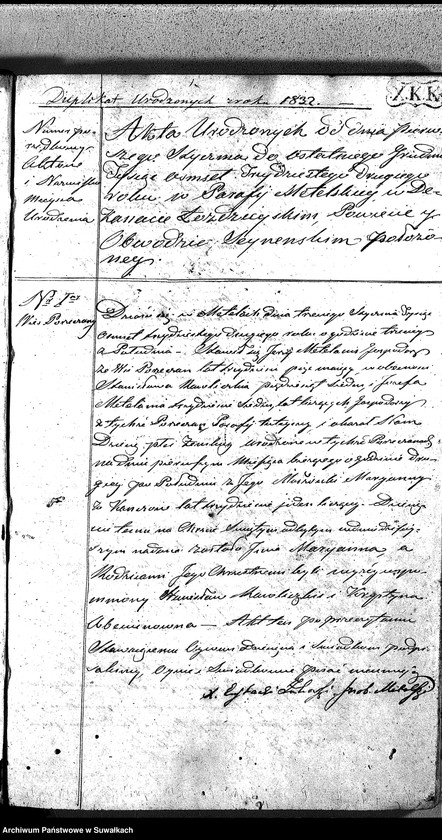 Duplikat Urodzonych z roku 1832.
X.K.K
Numer po-
rządkowy
Aktów
i Nazwisko
miejsca
Urodzenia
Akta Urodzonych od dnia pierw
szego Stycznia do ostatniego Grudnia
tysiąc osmset trzydziestego drugiego
roku w Parafij Metelskiej w De-
kanacie Łozdzieyskim, Powiecie y
Obwodzie Seynenskim położo-
ney.
No 1szy
Wieś Poserowy
Działo się w Metelach dnia trzeciego Stycznia tysiąc
osmset trzydziestego drugiego roku o godzinie trzeciej
z Południa – Stawił się Jerzy Metelans Gospodarz
ze Wsi lat trzydzieści pięć mający w obecności
Stanisława pięćdziesiąt siedm, i Jozefa
lat liczących Gospodarzy
z tychże Parafij tutejszej i okazał Nam
Dziecię płci Żeńskiej urodzone w tychże
na dniu pierwszym Miesiąca bieżącego o godzinie dru-
giej po Południu z Jego Małżonki Maryanny
z lat trzydzieści jeden liczącej – Dziecię-
ciu temu na Chrzcie Świętym odbytym w dniu dzisiej-
szym nadane zostało Imie Maryanna a
Rodzicami Jego Chrzestnemi byli wyżej wspo-
mniony Stanisław i Krystyna
– Akt ten po przeczytaniu
Stawaiącemu Oycowi Dziecięcia i Świadkom podpi-
saliśmy, Oyciec i Świadkowie pisać nieumieją
X.
Archiwum Państwowe w Suwałkach